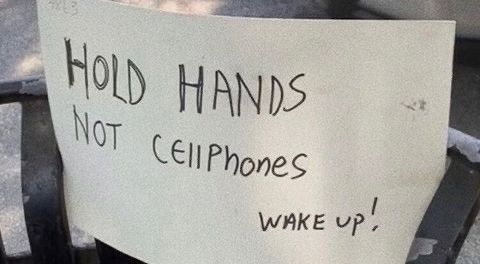 HOLD HANDS
NOT CEllPhONES
WAKE UP!